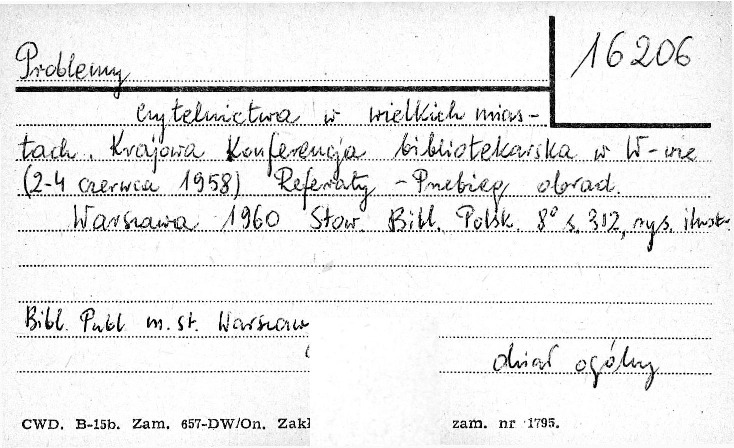 16206
Problemy
czytelnictwa w wielkich mias-
tach. Krajowa Konferencja bibliotekarska w W-wie
(2-4 czerwca 1958) Referaty - Przebieg obrad.
Warszawa 1960 Stow. Bibl. Polsk. 8° s. 312, rys. ilustr.
Bibl. Publ. m. st. Warszaw
dział ogólny
CWD. B-15b. Zam. 657-DW/On. Zakł zam. nr 1795.